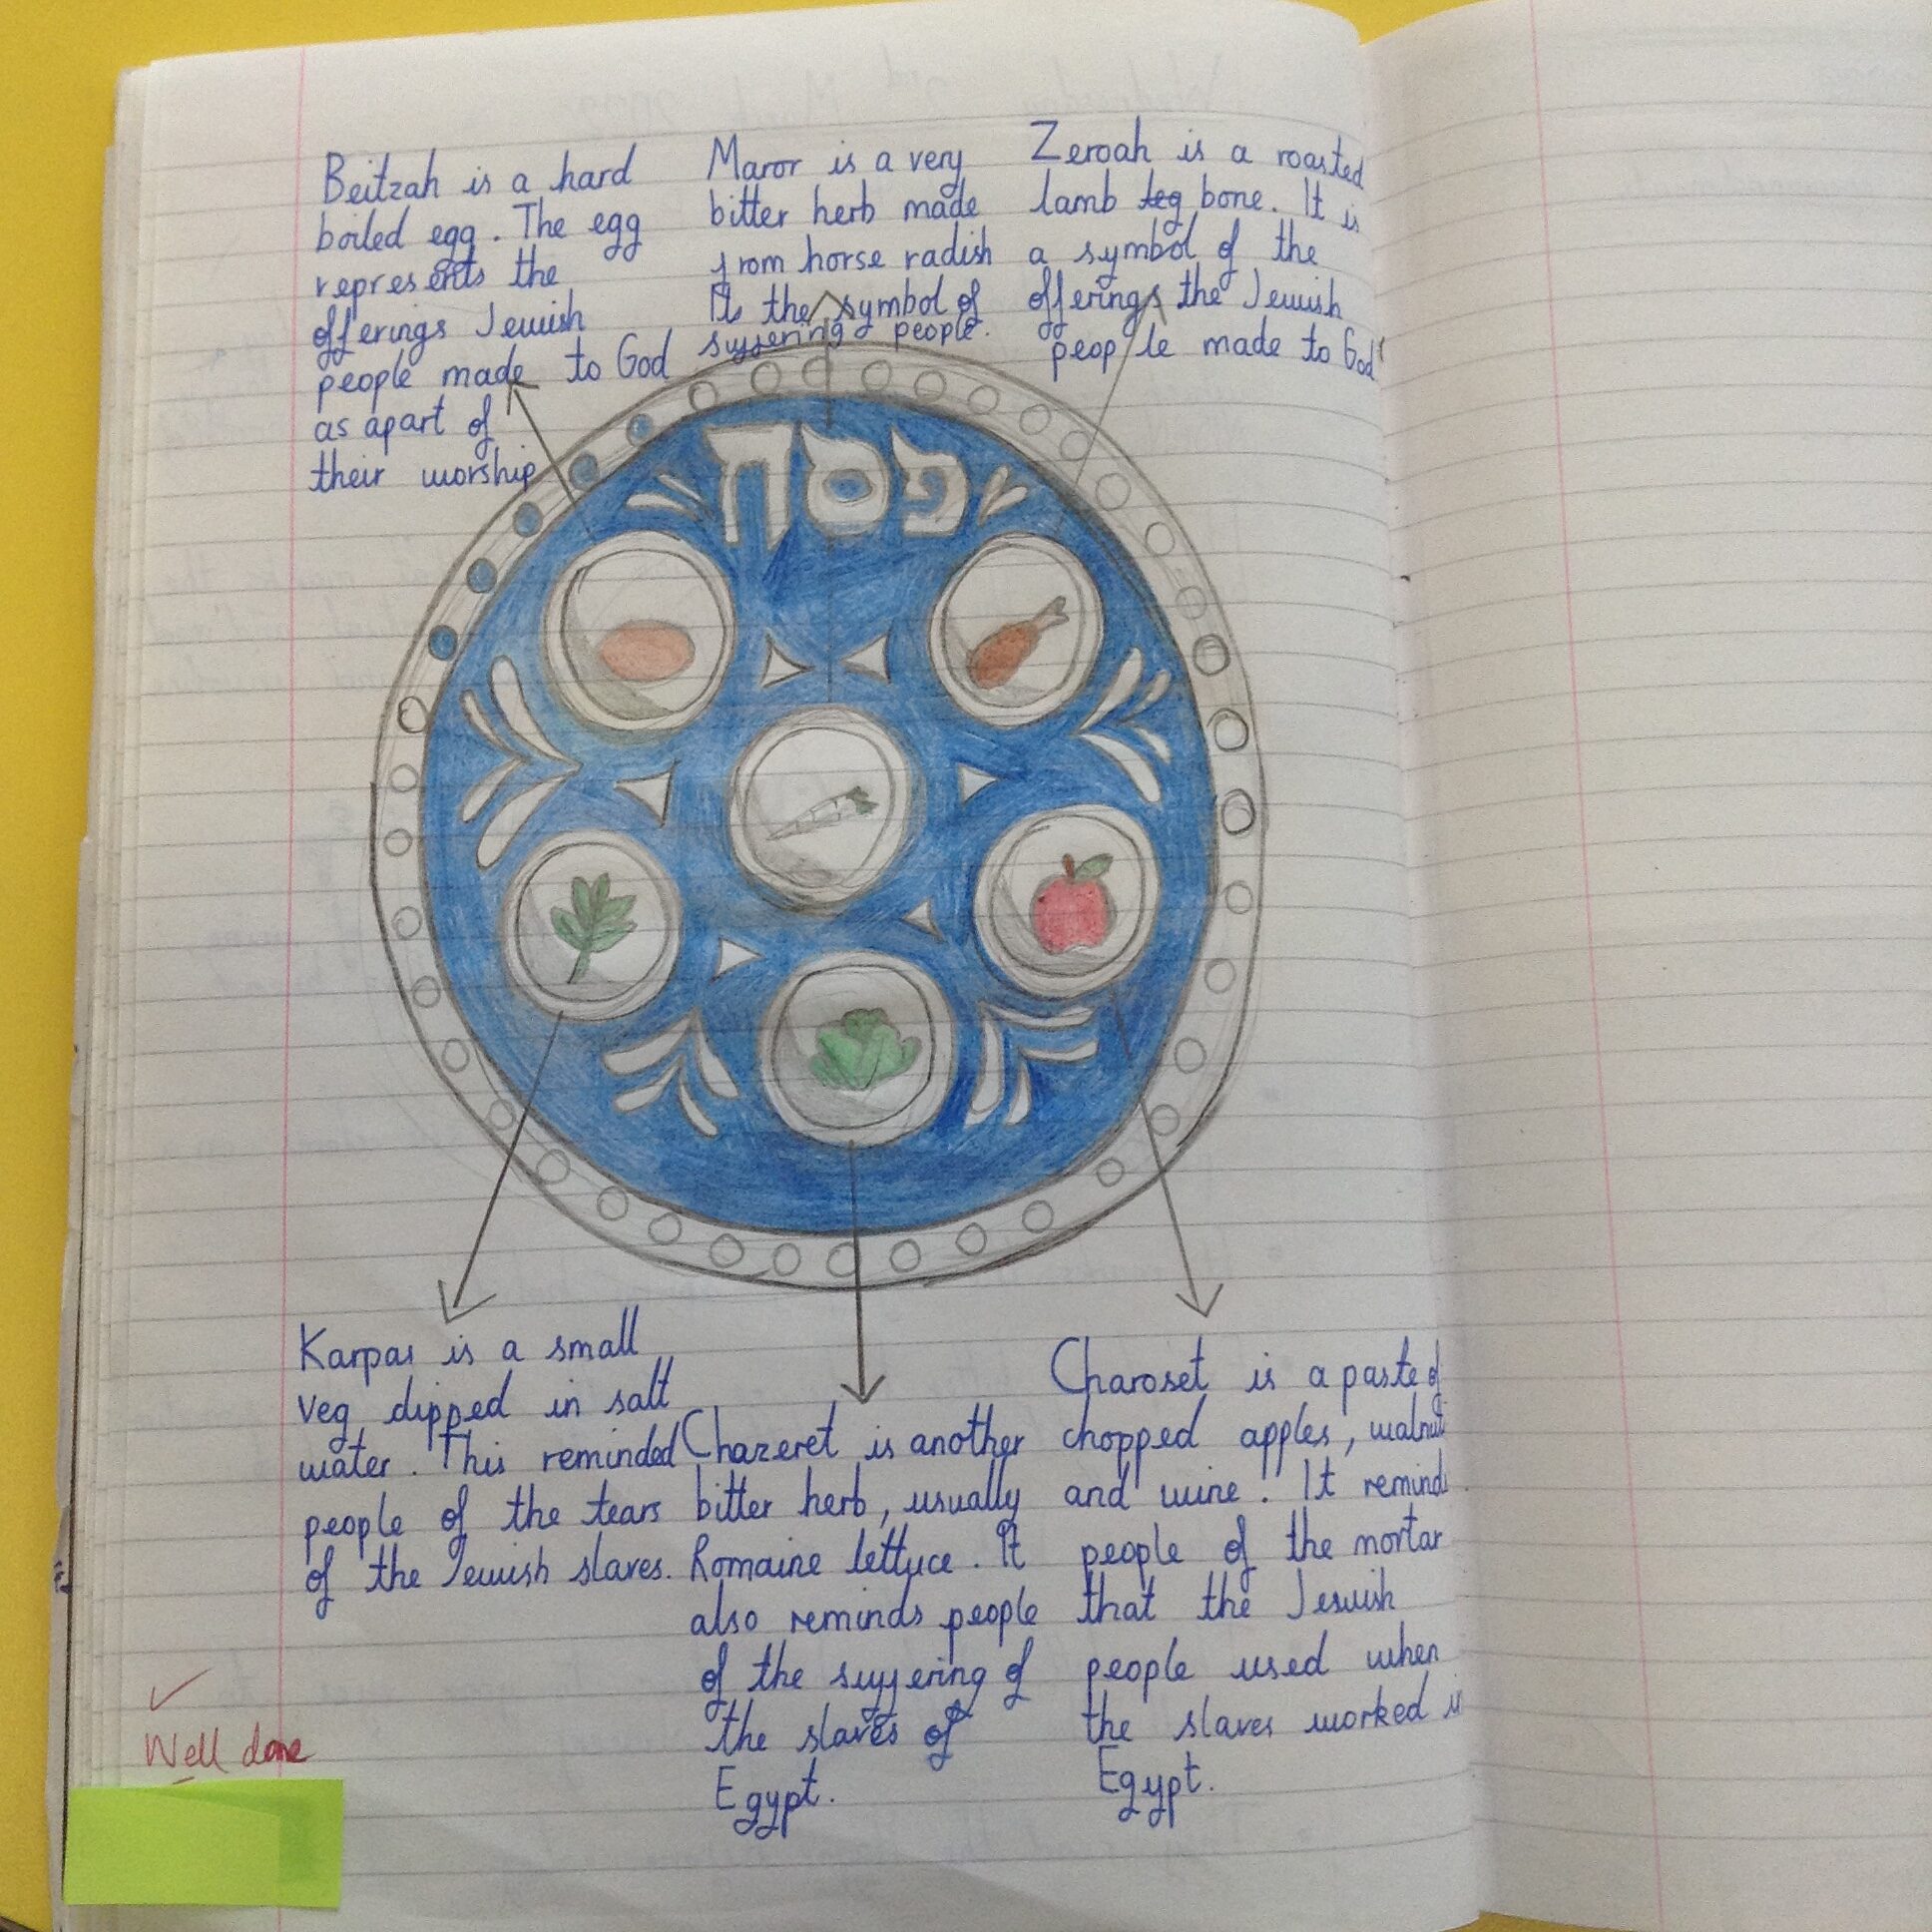 Beitzah is a hard
boiled egg. The egg
represents the
offerings Jewish
people made to God
as apart of
their worship
Maror is a very
bitter herb made
from horse radish
It the symbol of
suffering people.
Zeroah is a roasted
lamb leg bone. It is
a symbol of the
offerings the Jewish
people made to God
פסח
Karpas is a small
veg dipped in salt
water. This reminded
people of the tears
of the Jewish slaves.
Chazeret is another
bitter herb, usually
Romaine lettuce. It
also reminds people
of the suffering of
the slaves of
Egypt.
Charoset is a paste of
chopped apples, walnuts
and wine. It reminds
people of the mortar
that the Jewish
people used when
the slaves worked in
Egypt.
Well done